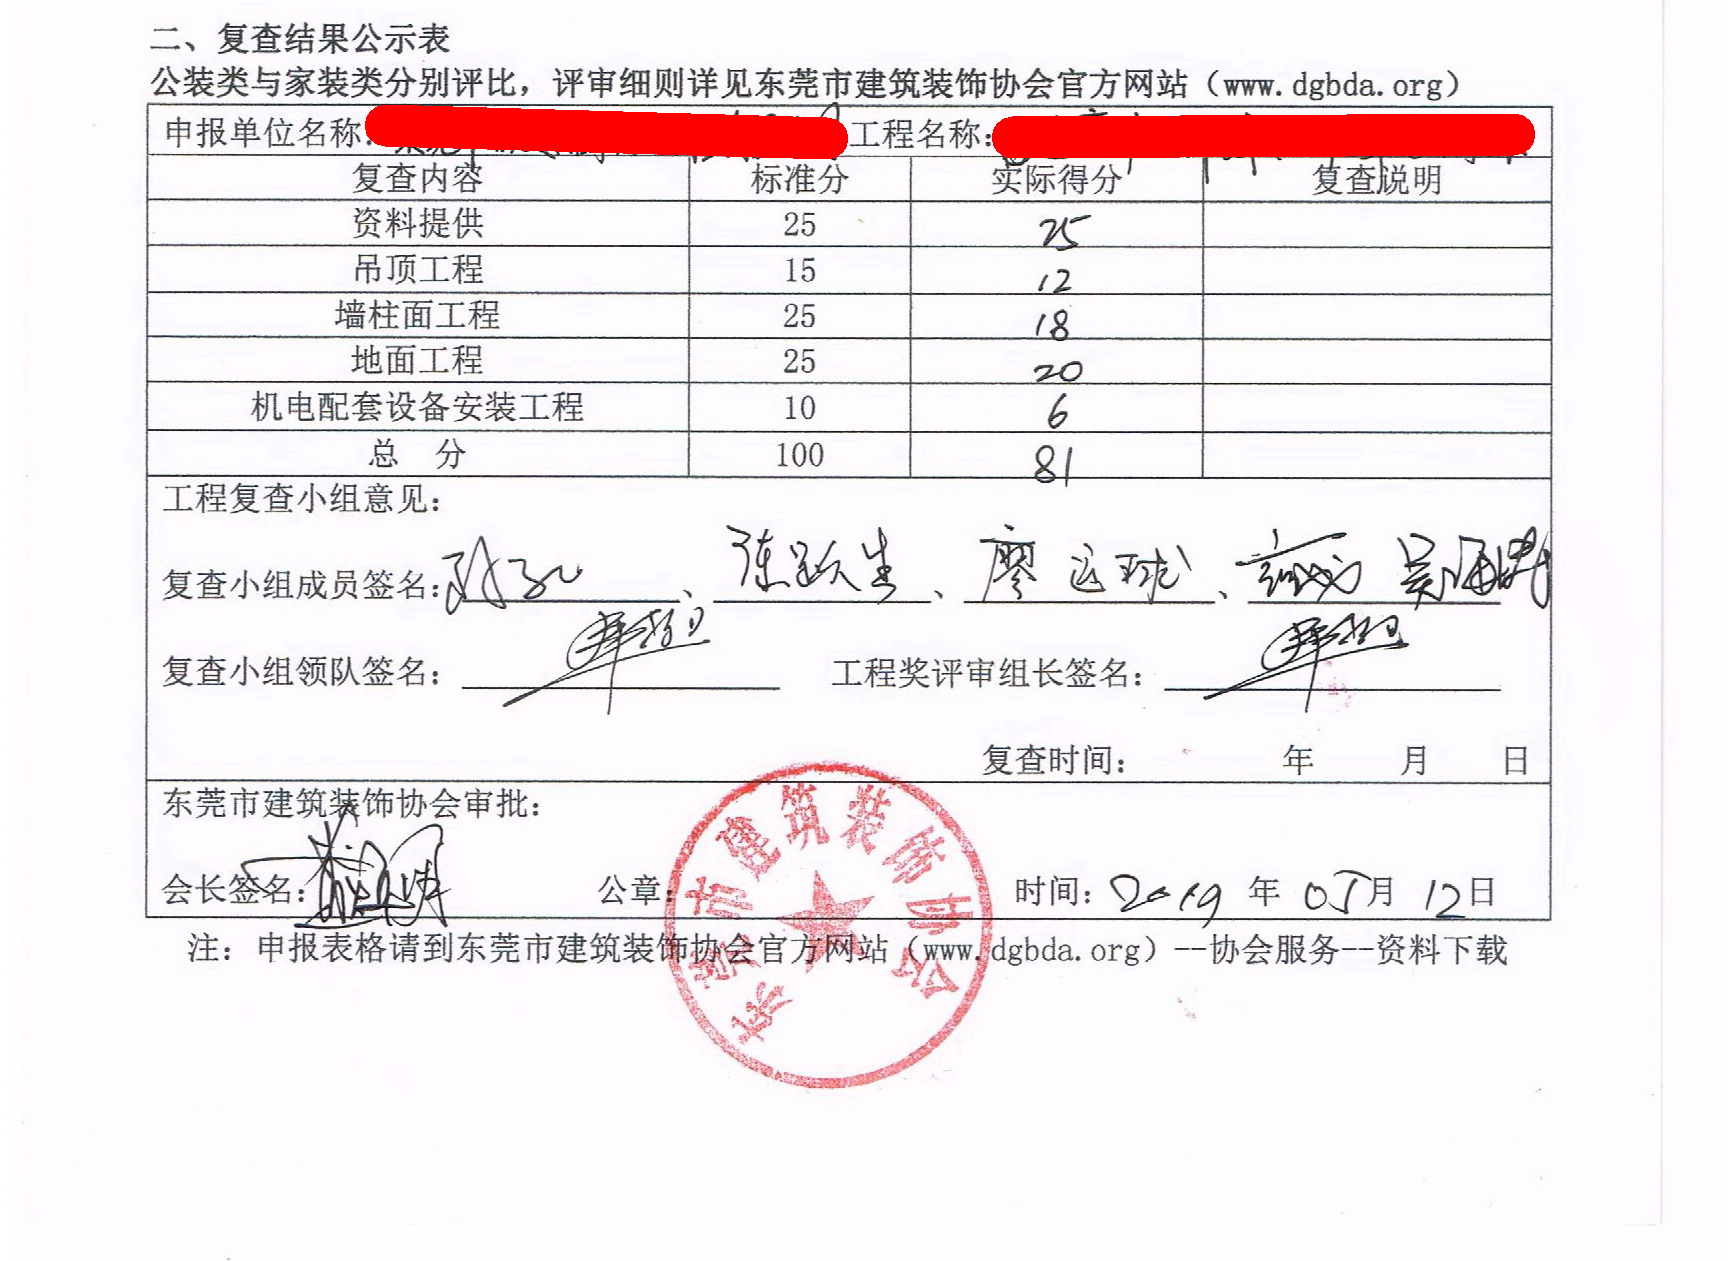 二、复查结果公示表
公装类与家装类分别评比，评审细则详见东莞市建筑装饰协会官方网站（www.dgbda.org）
申报单位名称： 工程名称：
复查内容 标准分 实际得分 复查说明
资料提供 25 25
吊顶工程 15 12
墙柱面工程 25 18
地面工程 25 20
机电配套设备安装工程 10 6
总 分 100 81
工程复查小组意见：
复查小组成员签名： 、陈跃生、廖远球、
复查小组领队签名： 工程奖评审组长签名：
复查时间： 年 月 日
东莞市建筑装饰协会审批：
会长签名： 公章： 时间：2019 年 05 月 12 日
东莞市建筑装饰协会
注：申报表格请到东莞市建筑装饰协会官方网站（www.dgbda.org）--协会服务--资料下载